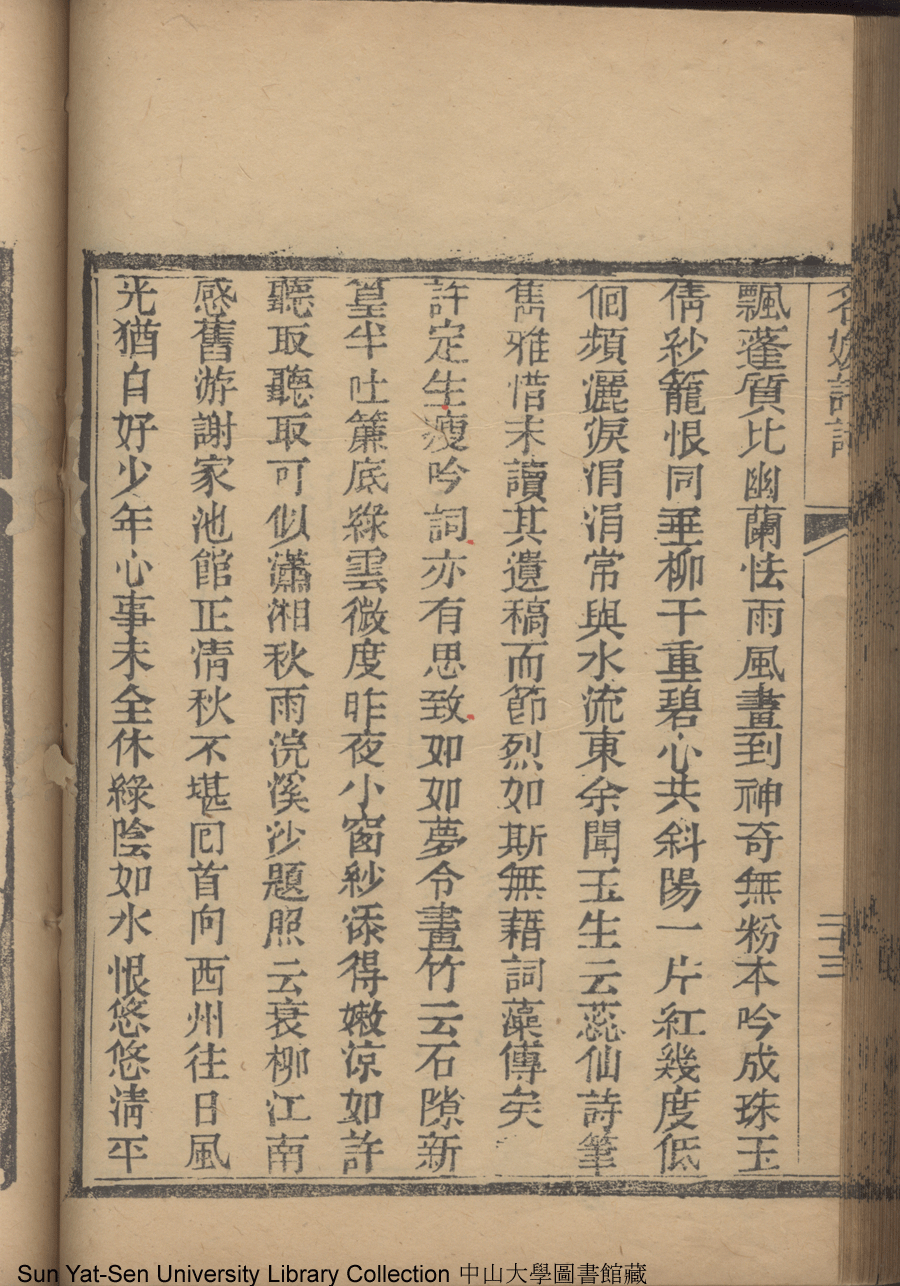 飄蓬質比幽蘭怯雨風畫到神奇無粉本吟成珠玉
倩紗籠恨同垂柳千重碧心共斜陽一片紅幾度低
佪頻灑淚涓涓常與水流東余聞玉生云蕊仙詩筆
雋雅惜未讀其遺稿而節烈如斯無藉詞藻傳矣
許定生瘦吟詞亦有思致如如夢令畫竹云石隙新
篁半吐簾底綠雲微度昨夜小窗紗添得嫩涼如許
聽取聽取可似瀟湘秋雨浣溪沙題照云衰柳江南
感舊游謝家池館正清秋不堪囘首向西州往日風
光猶自好少年心事未全休綠陰如水恨悠悠清平
Sun Yat-Sen University Library Collection 中山大學圖書館藏